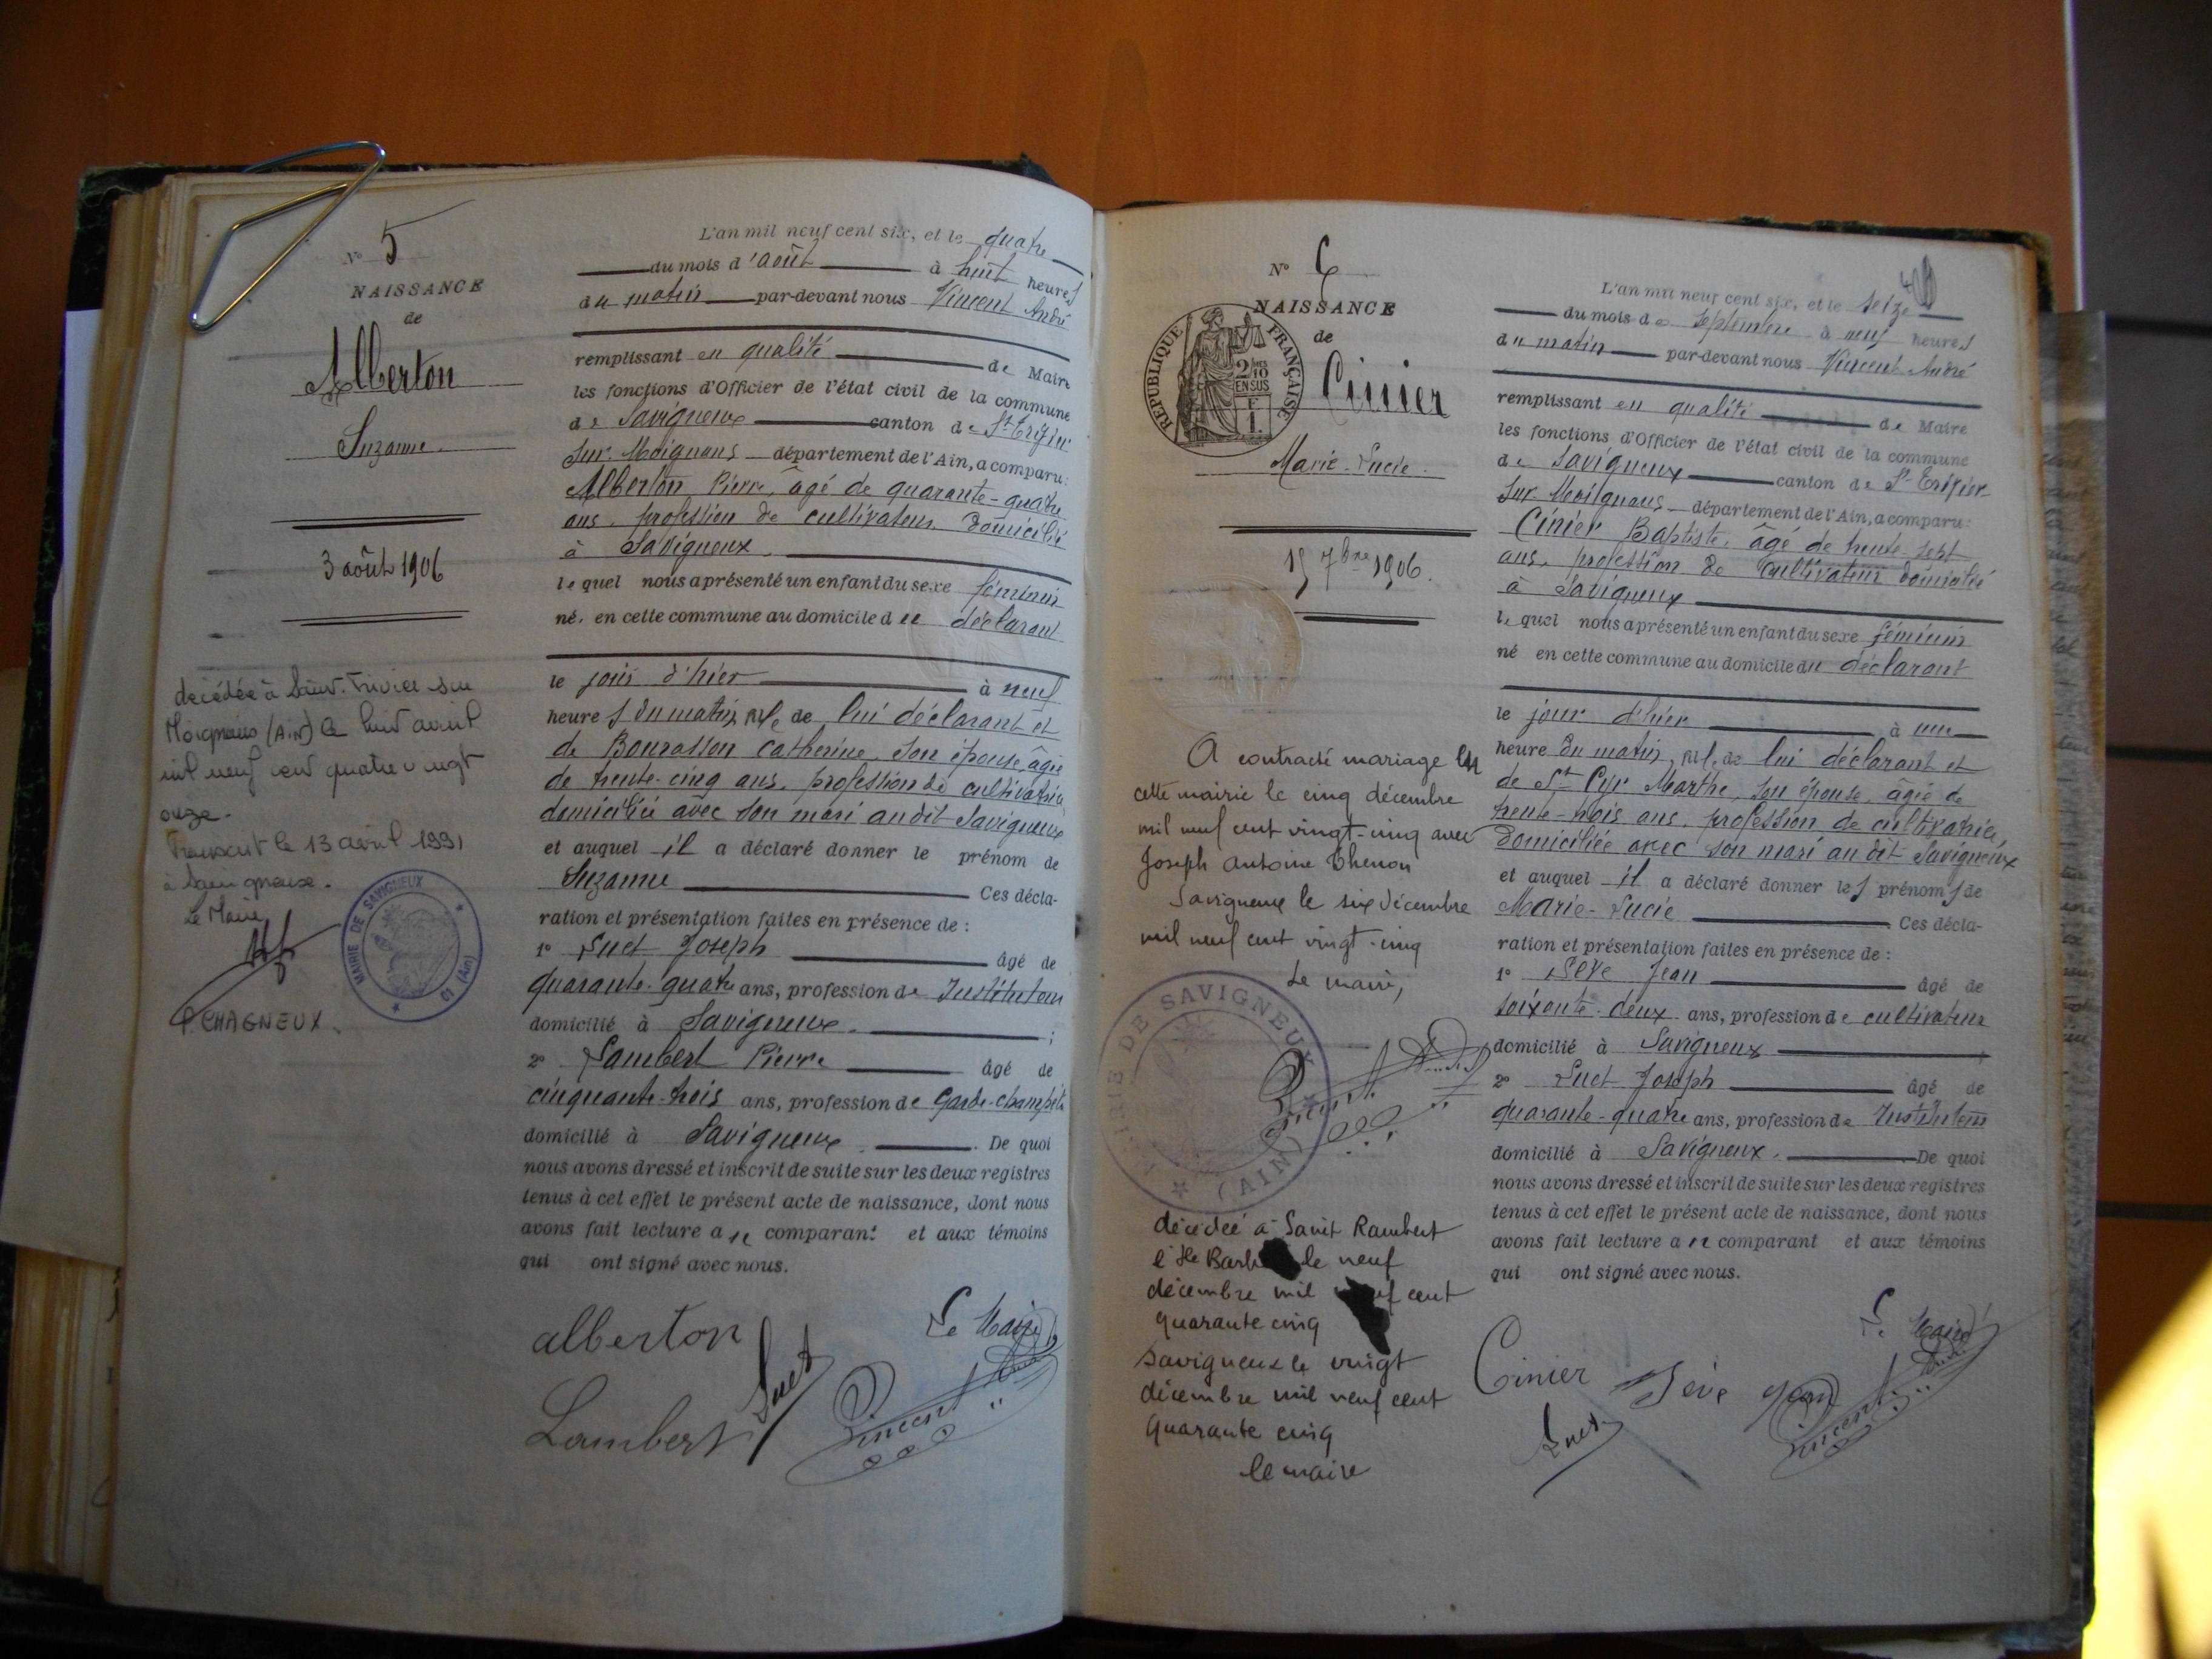 N° 5
NAISSANCE
de
Alberton
Suzanne
3 août 1906
décédée à Saint-Trivier sur
Moignans (Ain) le huit avril
mil neuf cent quatre vingt
onze.
Transcrit le 13 avril 1991
à Savigneux.
Le Maire
P. CHAGNEUX.
MAIRIE DE SAVIGNEUX
01 (Ain)
L'an mil neuf cent six, et le quatre
du mois d'août à huit heures
du matin par-devant nous Vincent André
remplissant en qualité de Maire
les fonctions d'Officier de l'état civil de la commune
de Savigneux canton de St Trivier
sur Moignans département de l'Ain, a comparu:
Alberton Pierre, âgé de quarante-quatre
ans, profession de cultivateur domicilié
à Savigneux.
lequel nous a présenté un enfant du sexe féminin
né en cette commune au domicile du déclarant
le jour d'hier à neuf
heures du matin, fille de lui déclarant et
de Bourasson Catherine, son épouse, âgée
de trente-cinq ans, profession de cultivatrice
domiciliée avec son mari audit Savigneux
et auquel il a déclaré donner le prénom de
Suzanne Ces décla-
ration et présentation faites en présence de :
1° Suet Joseph âgé de
quarante-quatre ans, profession de Instituteur
domicilié à Savigneux ;
2° Lambert Pierre âgé de
cinquante-trois ans, profession de Garde-champêtre
domicilié à Savigneux. De quoi
nous avons dressé et inscrit de suite sur les deux registres
tenus à cet effet le présent acte de naissance, dont nous
avons fait lecture au comparant et aux témoins
qui ont signé avec nous.
alberton
Suet
Le Maire
Lambert
Vincent André
N° 6
NAISSANCE
de
REPUBLIQUE FRANÇAISE
2/10 EN SUS
Cinier
Marie-Lucie.
15 7bre 1906.
A contracté mariage en
cette mairie le cinq décembre
mil neuf cent vingt-cinq avec
Joseph Antoine Thenon
Savigneux le six décembre
mil neuf cent vingt-cinq
Le maire,
MAIRIE DE SAVIGNEUX
(AIN)
Vincent André
décédée à Saint Rambert
l'Ile Barbe le neuf
décembre mil neuf cent
quarante cinq
Savigneux le vingt
décembre mil neuf cent
quarante cinq
le maire
L'an mil neuf cent six, et le seize
du mois de septembre à neuf heures
du matin par-devant nous Vincent André
remplissant en qualité de Maire
les fonctions d'Officier de l'état civil de la commune
de Savigneux canton de St Trivier
sur Moignans département de l'Ain, a comparu:
Cinier Baptiste, âgé de trente-sept
ans, profession de cultivateur domicilié
à Savigneux
lequel nous a présenté un enfant du sexe féminin
né en cette commune au domicile du déclarant
le jour d'hier à une
heure du matin, fille de lui déclarant et
de St Cyr Marthe, son épouse, âgée de
trente-trois ans, profession de cultivatrice,
domiciliée avec son mari au dit Savigneux
et auquel il a déclaré donner les prénoms de
Marie-Lucie Ces décla-
ration et présentation faites en présence de :
1° Sève Jean âgé de
soixante-deux ans, profession de cultivateur
domicilié à Savigneux ;
2° Suet Joseph âgé de
quarante-quatre ans, profession de Instituteur
domicilié à Savigneux. De quoi
nous avons dressé et inscrit de suite sur les deux registres
tenus à cet effet le présent acte de naissance, dont nous
avons fait lecture au comparant et aux témoins
qui ont signé avec nous.
Le Maire
Cinier Sève Jean
Suet
Vincent André